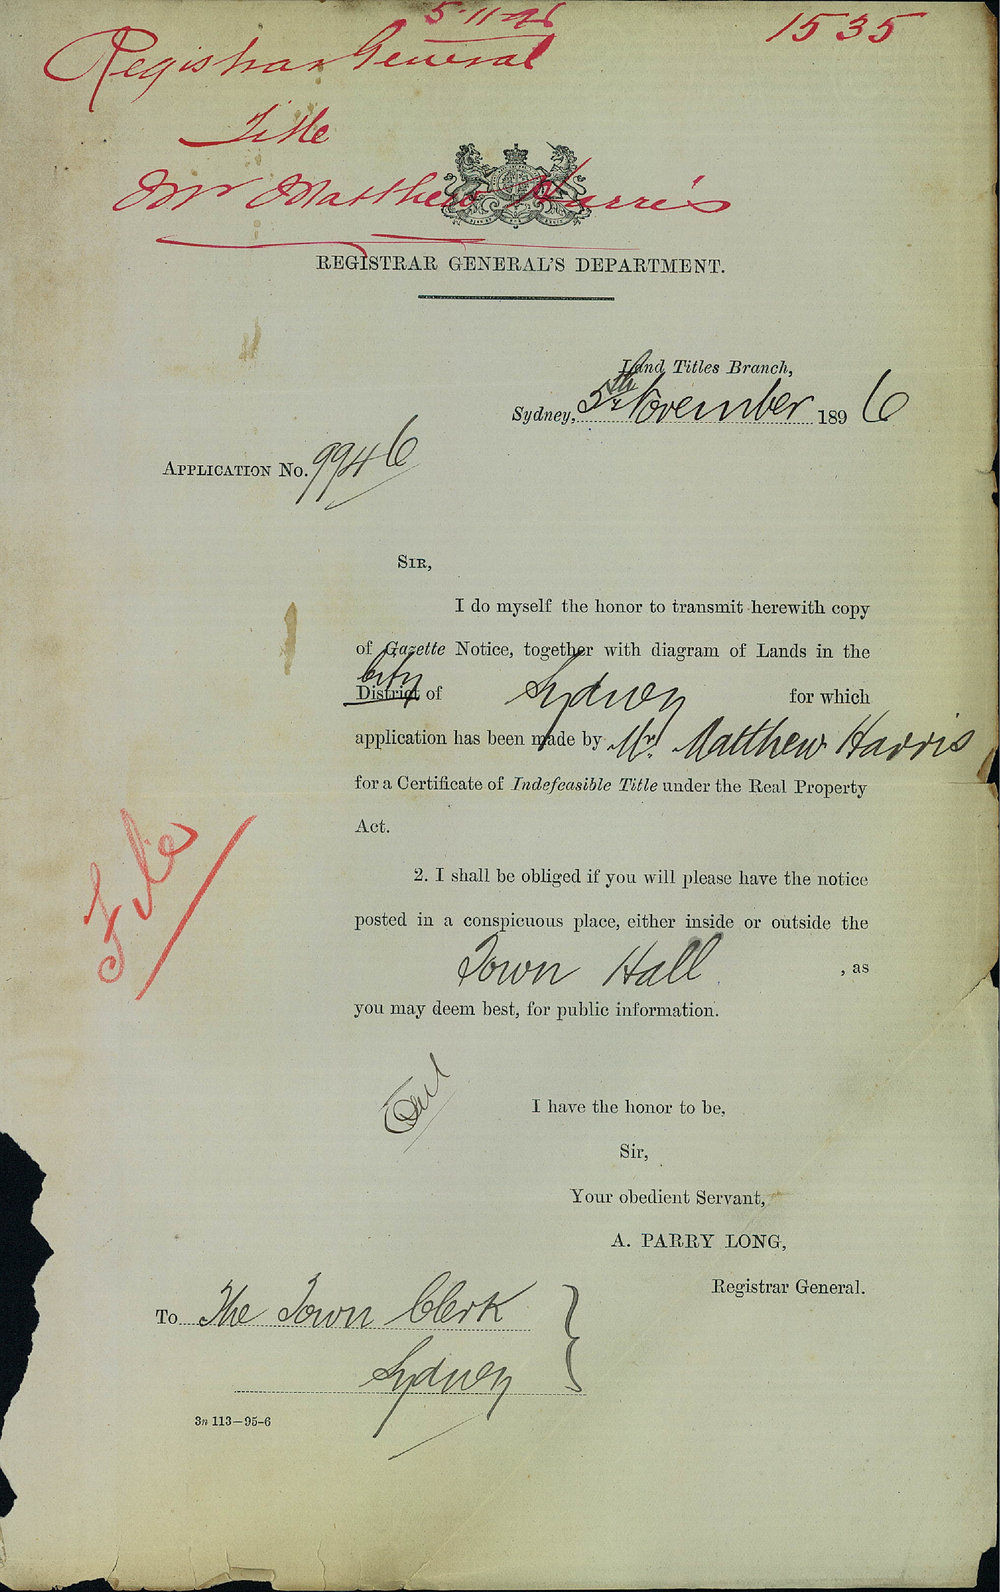 5·11·96
1535
Registrar General
Title
Mr Matthew Harris
REGISTRAR GENERAL'S DEPARTMENT.
Land Titles Branch,
Sydney, 5th November 1896
APPLICATION No. 9946
SIR,
I do myself the honor to transmit herewith copy
of Gazette Notice, together with diagram of Lands in the
City
District of Sydney for which
application has been made by Mr. Matthew Harris
for a Certificate of Indefeasible Title under the Real Property
Act.
File
2. I shall be obliged if you will please have the notice
posted in a conspicuous place, either inside or outside the
Town Hall, as
you may deem best, for public information.
I have the honor to be,
Sir,
Your obedient Servant,
A. PARRY LONG,
Registrar General.
To The Town Clerk
Sydney
3n 113—95-6